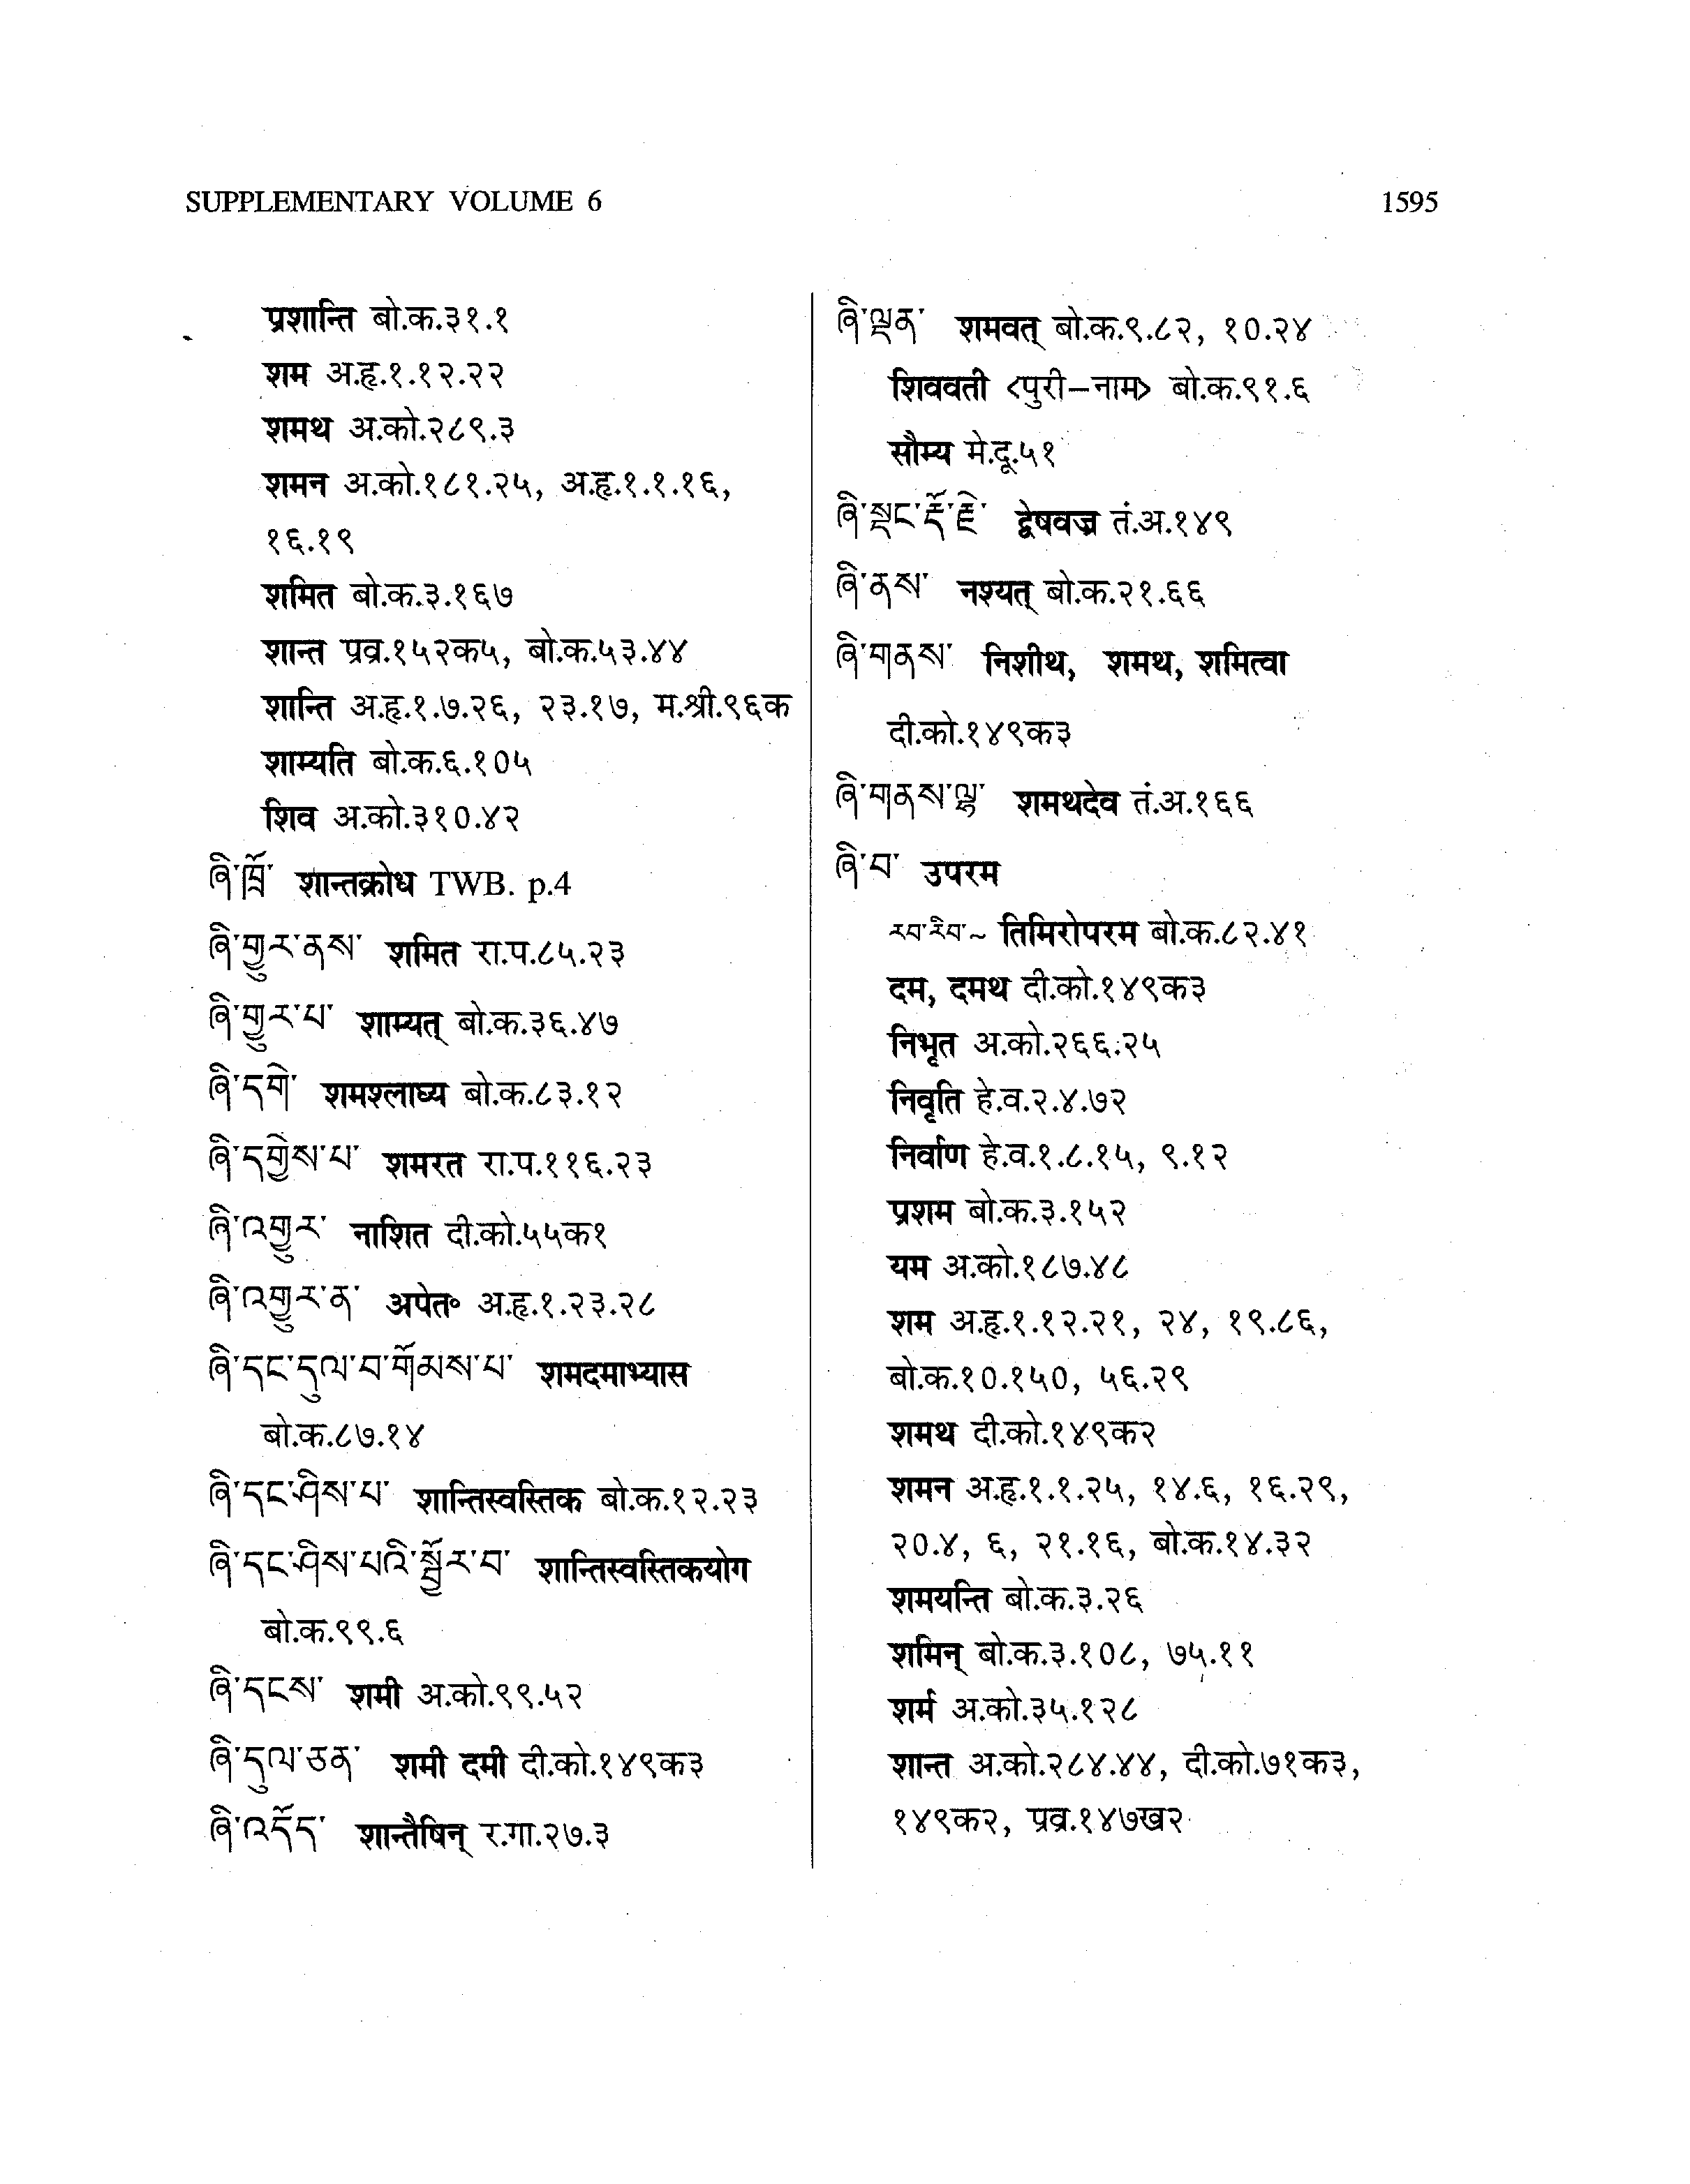 SUPPLEMENTARY VOLUME 6
1595
प्रशान्ति बो.क.३१.१
शम अ.हृ.१.१२.२२
शमथ अ.को.२८९.३
शमन अ.को.१८१.२५, अ.हृ.१.१.१६,
१६.१९
शमित बो.क.३.१६७
शान्त प्रव्र.१५२क५, बो.क.५३.४४
शान्ति अ.हृ.१.७.२६, २३.१७, म.श्री.९६क
शाम्यति बो.क.६.१०५
शिव अ.को.३१०.४२
ཞི་ཁྲོ་ शान्तक्रोध TWB. p.4
ཞི་གྱུར་ནས་ शमित रा.प.८५.२३
ཞི་གྱུར་པ་ शाम्यत् बो.क.३६.४७
ཞི་དགེ་ शमश्लाघ्य बो.क.८३.१२
ཞི་དགྱེས་པ་ शमरत रा.प.११६.२३
ཞི་འགྱུར་ नाशित दी.को.५५क१
ཞི་འགྱུར་ན་ अपेत॰ अ.हृ.१.२३.२८
ཞི་དང་དུལ་བ་གོམས་པ་ शमदमाभ्यास
बो.क.८७.१४
ཞི་དང་ཤིས་པ་ शान्तिस्वस्तिक बो.क.१२.२३
ཞི་དང་ཤིས་པའི་སྦྱོར་བ་ शान्तिस्वस्तिकयोग
बो.क.९९.६
ཞི་དངས་ शमी अ.को.९९.५२
ཞི་དུལ་ཅན་ शमी दमी दी.को.१४९क३
ཞི་འདོད་ शान्तैषिन् र.गा.२७.३
ཞི་ལྡན་ शमवत् बो.क.९.८२, १०.२४
शिववती <पुरी-नाम> बो.क.९१.६
सौम्य मे.दू.५१
ཞི་སྡང་རྡོ་རྗེ་ द्वेषवज्र तं.अ.१४९
ཞི་ནས་ नश्यत् बो.क.२१.६६
ཞི་གནས་ निशीथ, शमथ, शमित्वा
दी.को.१४९क३
ཞི་གནས་ལྷ་ शमथदेव तं.अ.१६६
ཞི་བ་ उपरम
རབ་རིབ་~ तिमिरोपरम बो.क.८२.४१
दम, दमथ दी.को.१४९क३
निभृत अ.को.२६६.२५
निवृति हे.व.२.४.७२
निर्वाण हे.व.१.८.१५, ९.१२
प्रशम बो.क.३.१५२
यम अ.को.१८७.४८
शम अ.हृ.१.१२.२१, २४, १९.८६,
बो.क.१०.१५०, ५६.२९
शमथ दी.को.१४९क२
शमन अ.हृ.१.१.२५, १४.६, १६.२९,
२०.४, ६, २१.१६, बो.क.१४.३२
शमयन्ति बो.क.३.२६
शमिन् बो.क.३.१०८, ७५.११
शर्म अ.को.३५.१२८
शान्त अ.को.२८४.४४, दी.को.७१क३,
१४९क२, प्रव्र.१४७ख२